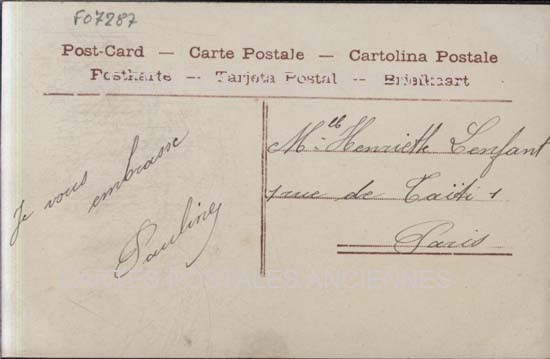 F07287
Post-Card — Carte Postale — Cartolina Postale
Postkarte — Tarjeta Postal — Briefkaart
Je vous
embrasse
Pauline
Mlle Henriette Lenfant
1 rue de Taïti 1
Paris
CARTES POSTALES ANCIENNES